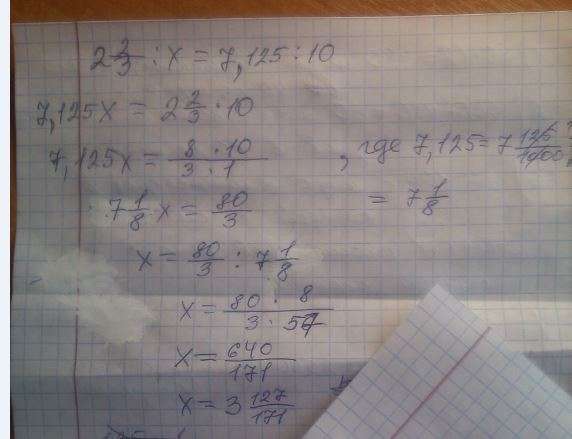 2 2/3 : x = 7,125 : 10
7,125x = 2 2/3 · 10
7,125x = (8 · 10)/(3 · 1) , где 7,125 = 7 125/1000 =
= 7 1/8
7 1/8 x = 80/3
x = 80/3 : 7 1/8
x = (80 · 8)/(3 · 57)
x = 640/171
x = 3 127/171